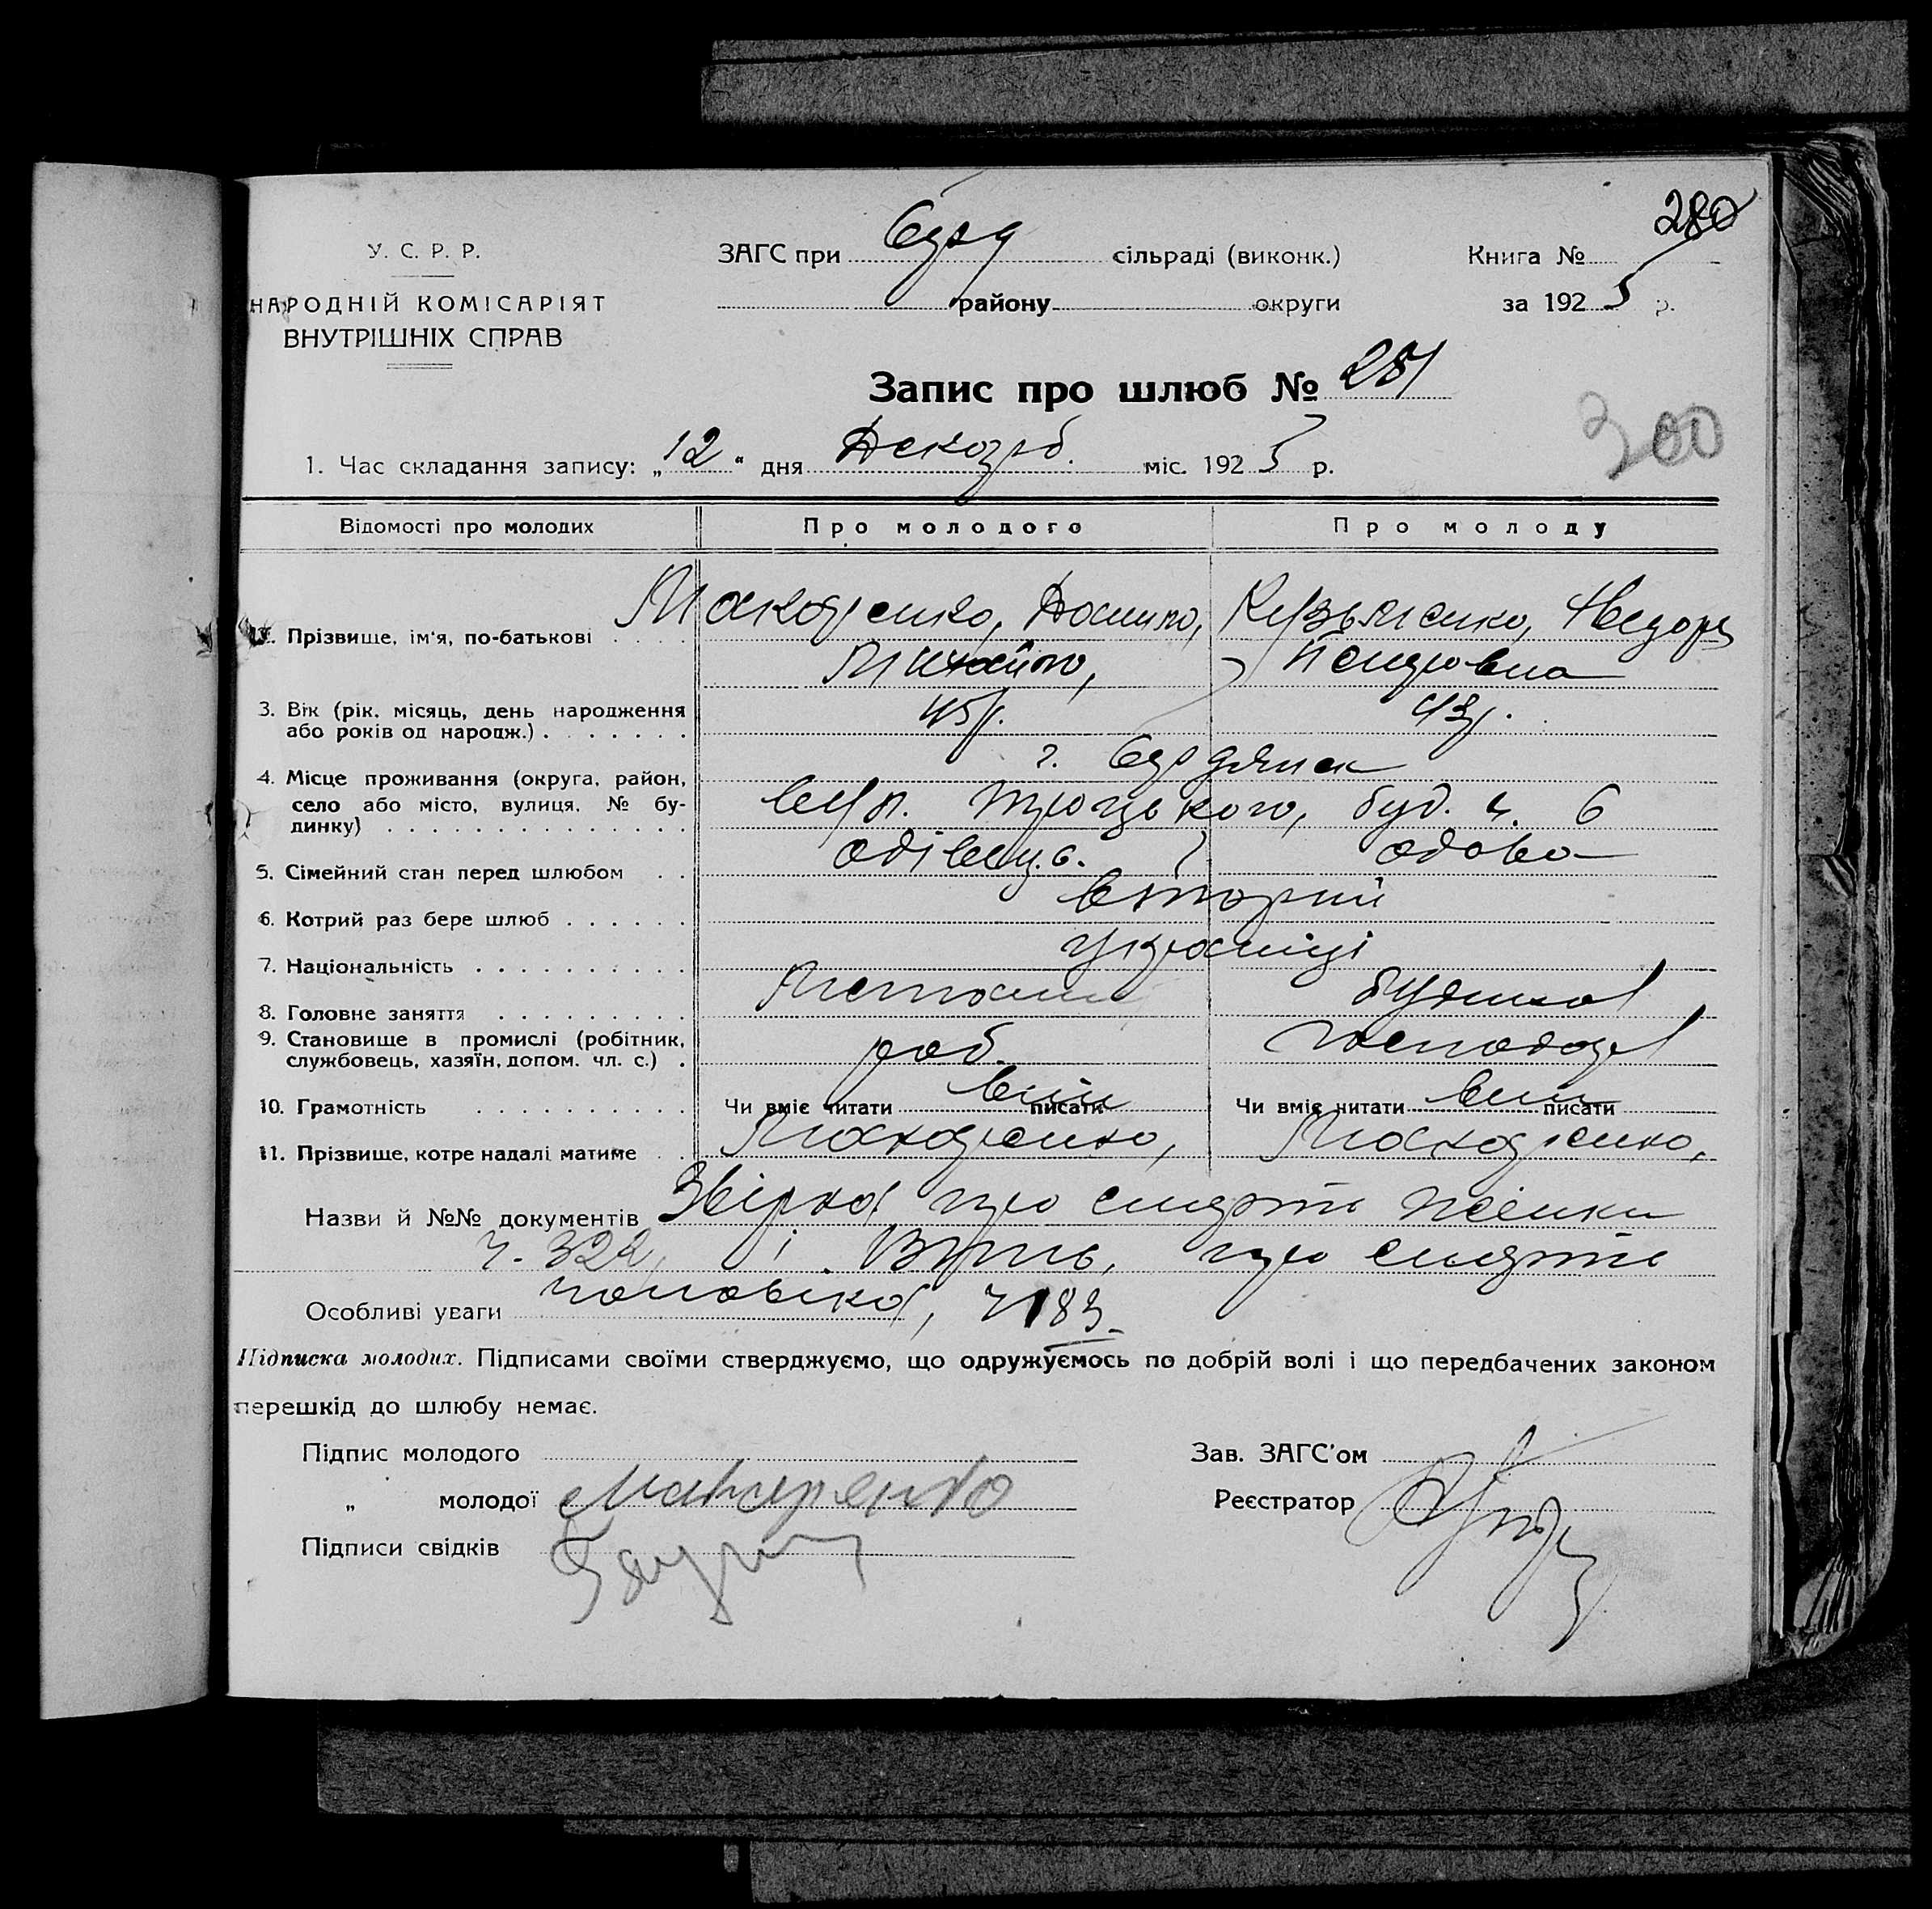 280
У. С. Р. Р.
ЗАГС при сільраді (виконк.) Книга №
НАРОДНІЙ КОМІСАРІЯТ району округи за 1925 р.
ВНУТРІШНІХ СПРАВ
Запис про шлюб № 281
300
1. Час складання запису: „12“ дня Декабр. міс. 1925 р.
Відомості про молодих Про молодого Про молоду
2. Прізвище, ім‘я, по-батькові . . . . Макаренко, Данило, Кузьменко, Федора
Михайло, Петровна
3. Вік (рік. місяць, день народження 45 р. 43 р.
або років од народж.) . . . . . . .
г. Бердянск
4. Місце проживання (округа, район, вул. Троцького, буд. ч. 6
село або місто, вулиця, № бу-
динку) . . . . . . . . . . . . . .
5. Сімейний стан перед шлюбом . . удова
6. Котрий раз бере шлюб . . . . . . вторий
7. Національність . . . . . . . . . . українці
8. Головне заняття . . . . . . . . . будинков
9. Становище в промислі (робітник, роб. господар
службовець, хазяїн, допом. чл. с.) .
10. Грамотність . . . . . . . . . . Чи вміє читати вміє писати Чи вміє читати вміє писати
11. Прізвище, котре надалі матиме . . Макаренко, Макаренко,
Назви й №№ документів про смерть жінки
ч. 322, і про смерть
Особливі уваги чоловіка, ч 183
Підписка молодих. Підписами своїми стверджуємо, що одружуємось по добрій волі і що передбачених законом
перешкід до шлюбу немає.
Підпис молодого Зав. ЗАГС’ом
„ молодої Макаренко Реєстратор
Підписи свідків